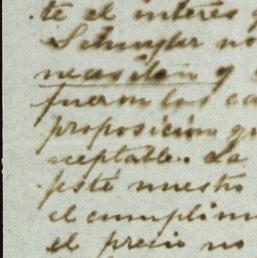 te el interés
Schuyler no
necesitan y
fueron los ca
proposición qu
ceptable. La
esté nuestro
el cumplim
el precio no